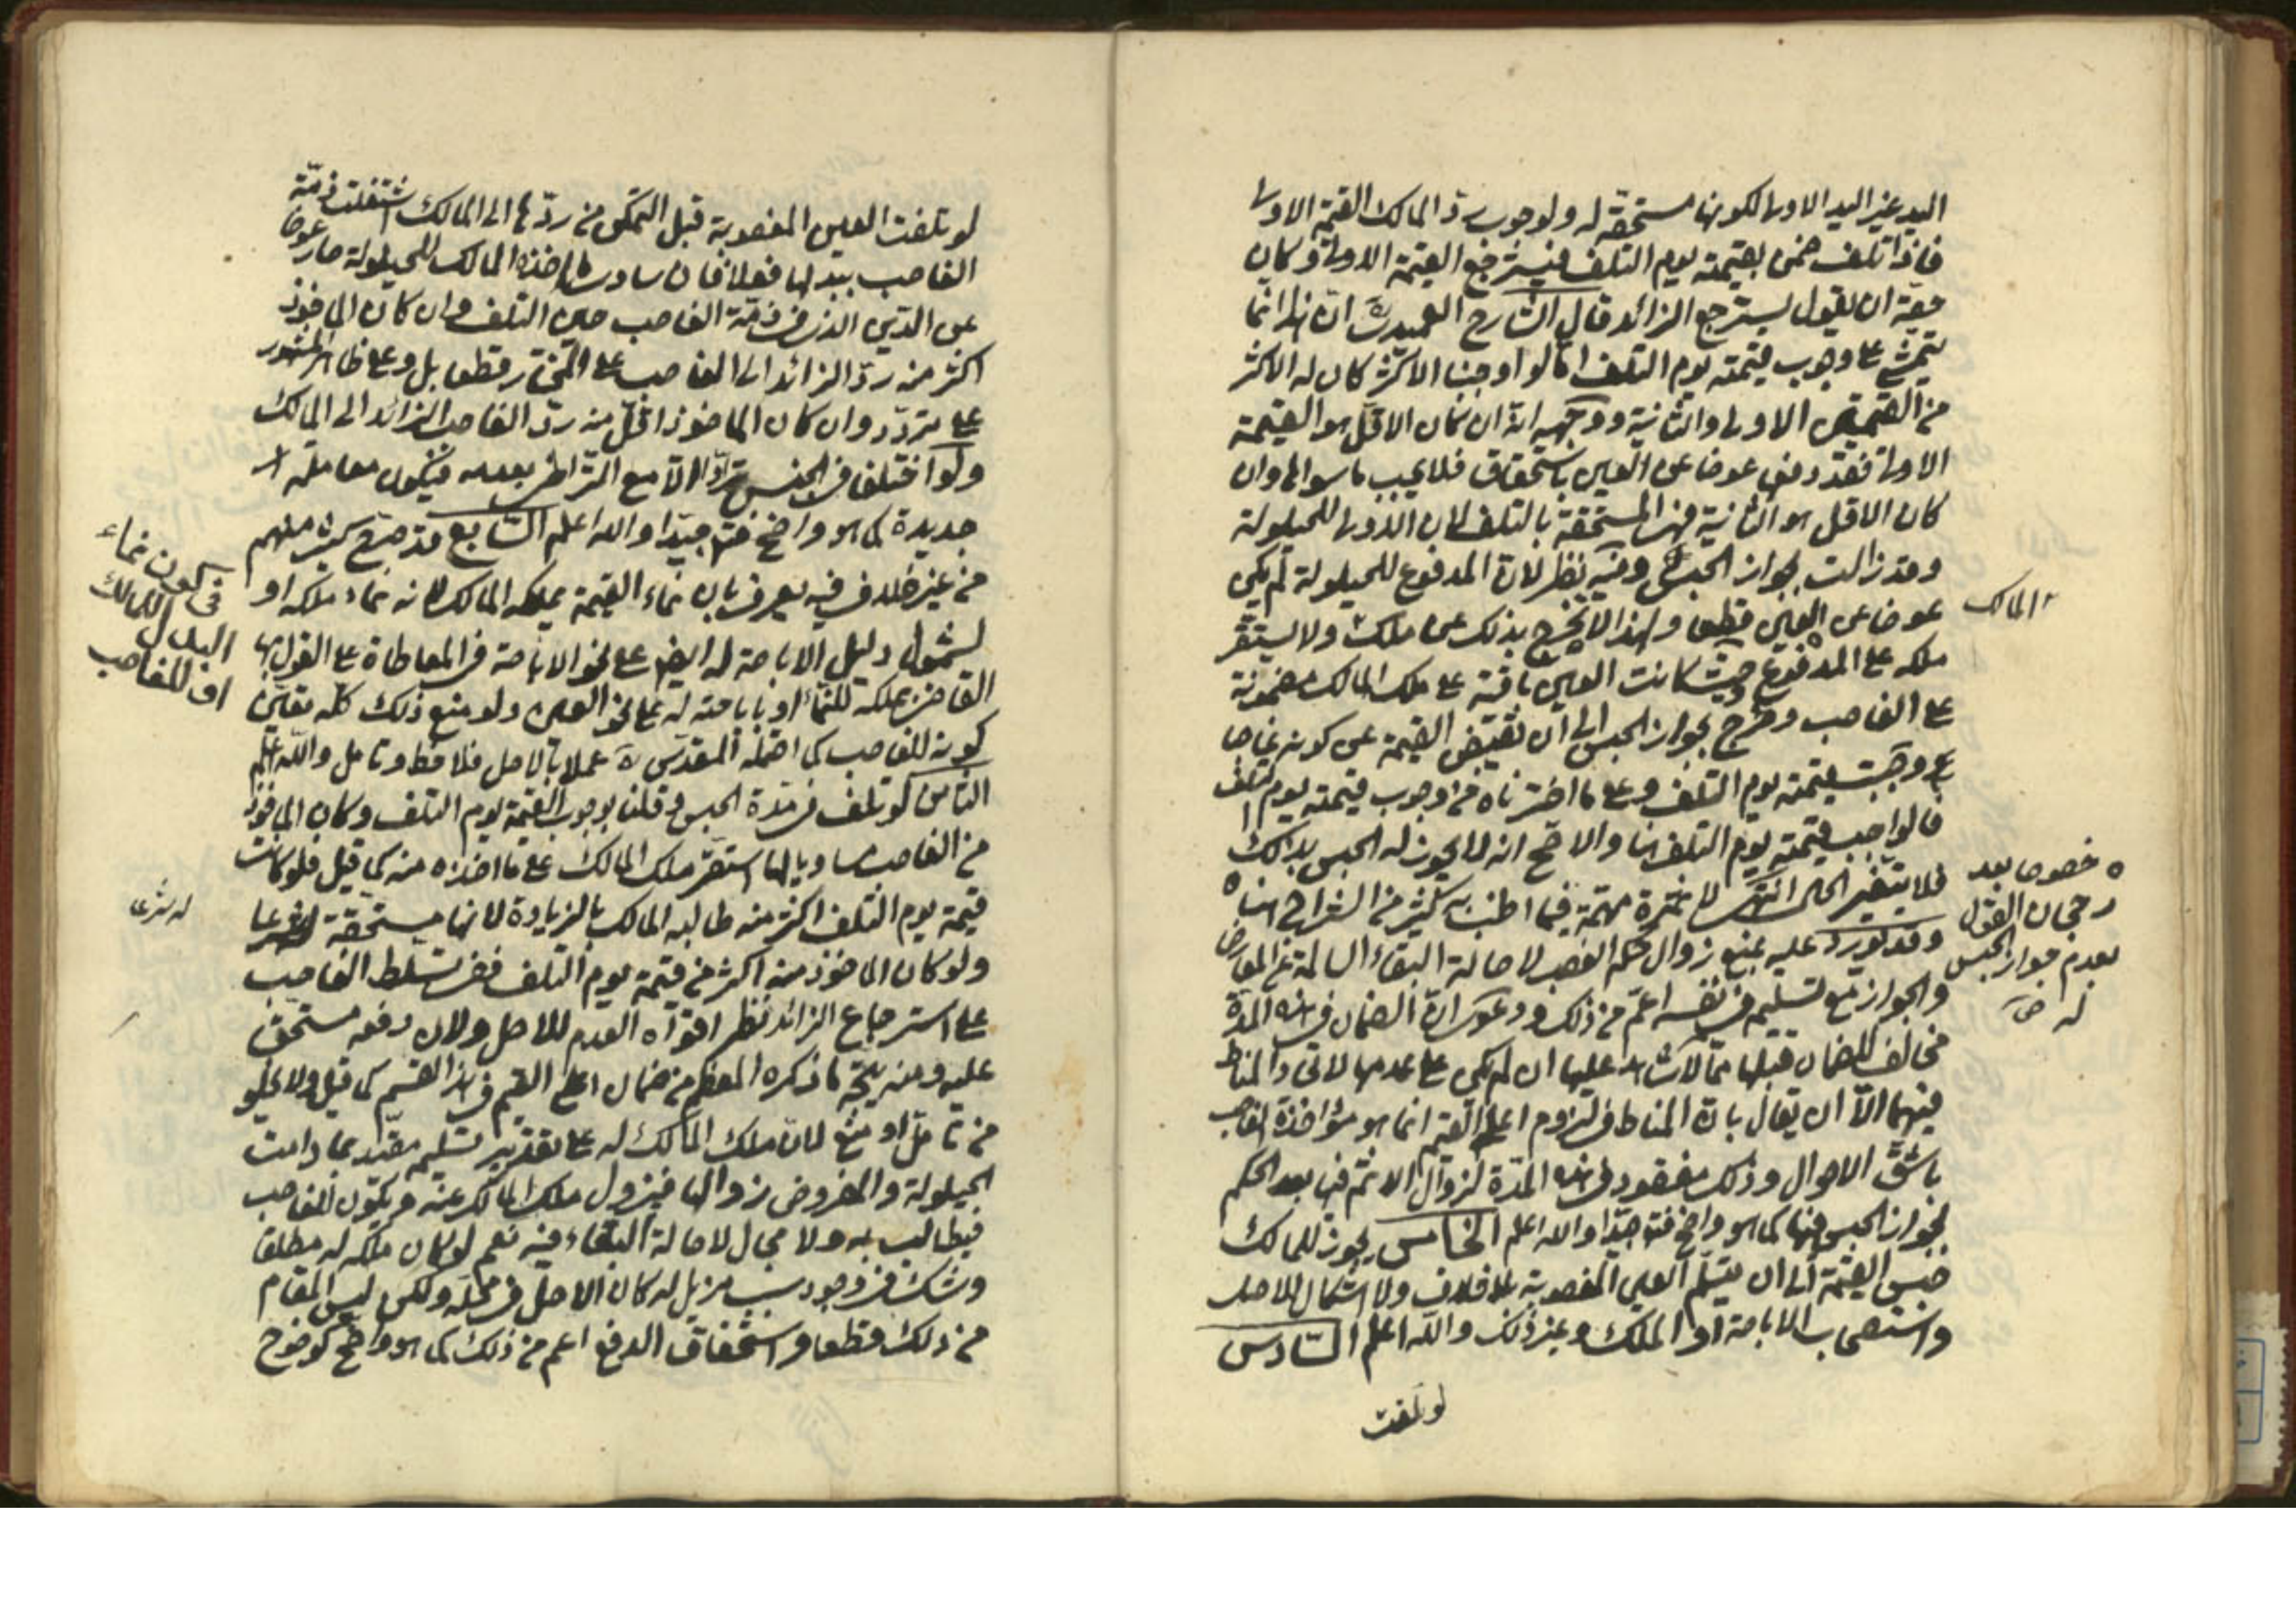 اليد غير اليد الاولى لكونها مستحقة له ولوجوب رد المالك القيمة الاولى
فاذا تلف ضمن بقيمته يوم التلف فيسترجع القيمة الاولى وكان
حقه ان يقول يسترجع الزائد قال الشارح العميدي ره ان هذا انما
يتمشى على وجوب قيمته يوم التلف اما لو اوجبنا الاكثر كان له الاكثر
من القيمتين الاولى والثانية ووجهه انه ان كان الاقل هو القيمة
الاولى فقد دفع عوضا عن العين باستحقاق فلا يجب ما سواها وان
كان الاقل هو الثانية فهى المستحقة بالتلف لان الاولى للحيلولة
وقد زالت بجواز الحبس وفيه نظر لان المدفوع للحيلولة لم يكن
عوضا عن العين قطعا ولهذا لا يخرج بذلك عن ملك ولا يستقر
المالك
ملكه على المدفوع وحيث كانت العين باقية على ملك المالك مضمونة
على الغاصب وخرج بجواز الحبس الى ان يقبض القيمة عن كونه غاصبا
وجبت قيمته يوم التلف وعلى ما اخترناه من وجوب قيمته يوم التلف
فالواجب قيمته يوم التلف هنا والاصح انه لا يجوز له الحبس بذلك
فلا يتغير الحكم انتهى فلا ثمرة مهمة فيما اطنب به كثير من الشراح هنا
خصوصا بعد
رجحان القول
بعدم جواز الحبس
له صح
وقد يورد عليه بمنع زوال حكم الغصب لاصالة البقاء السالمة عن المعارض
والجواز مع تسليمه في نفسه اعم من ذلك ودعوى ان الضمان في هذه المدة
مخالف للضمان قبلها مما لا شاهد عليها ان لم يكن على عدمها لاتحاد المناط
فيهما الا ان يقال بان المناط في لزوم اعلى القيم انما هو مؤاخذة الغاصب
باشق الاحوال وذلك مفقود في هذه المدة لزوال الاثم فيها بعد الحكم
بجواز الحبس فيها كما هو واضح فتامل جيدا والله اعلم الخامس يجوز للمالك
حبس القيمة الى ان يتسلم العين المغصوبة بلا خلاف ولا اشكال للاصل
واستصحاب الاباحة او الملك وغير ذلك والله اعلم السادس
لو تلفت
لو تلفت العين المغصوبة قبل التمكن من ردها الى المالك اشتغلت ذمة
الغاصب ببدلها فعلا فان ساوى ما اخذه المالك للحيلولة صار عوضا
عن الدين الذى في ذمة الغاصب حين التلف وان كان الماخوذ
اكثر منه رد الزائد الى الغاصب على المختار قطعا بل وعلى ظاهر المشهور
على تردد وان كان الماخوذ اقل منه رد الغاصب الزائد الى المالك
ولو اختلفا في الجنس ترادا الا مع التراضى بعدمه فيكون معاملة
جديدة كما هو واضح فتامل جيدا والله اعلم السابع قد صرح كثير منهم
من غير خلاف فيه يعرف بان نماء القيمة يملكه المالك لانه نماء ملكه او
في كون نماء
البدل للمالك
او للغاصب
لشمول دليل الاباحة له ايضا على نحو الاباحة في المعاطاة على القول بها
القاضى بملكه للنماء او باباحته له على نحو العين ولو منع ذلك كله تعين
كونه للغاصب كما احتمله المقدس ره عملا بالاصل فلاحظ وتامل والله اعلم
الثامن لو تلف في مدة الحبس وقلنا بوجوب القيمة يوم التلف وكان الماخوذ
من الغاصب مساويا لها استقر ملك المالك على ما اخذه منه كما قيل فلو كانت
قيمة يوم التلف اكثر منه طالبه المالك بالزيادة لانها مستحقة له شرعا
له شرعا
ولو كان الماخوذ منه اكثر من قيمة يوم التلف ففى تسلط الغاصب
على استرجاع الزائد نظر اقواه العدم للاصل ولان دفعه مستحق
عليه ومنه يتجه ما ذكره المعظم من ضمان اعلى القيم في هذا القسم كما قيل ولا يخلو
من تامل او منع لان ملك المالك له على تقدير تسليمه مقيد بما دامت
الحيلولة والمفروض زوالها فيزول ملك المالك عنه ويكون للغاصب
فيطالب به ولا مجال لاصالة البقاء فيه نعم لو كان ملكه له مطلقا
وشك في وجود سبب مزيل له كان الاصل في محله ولكن ليس المقام
من ذلك قطعا واستحقاق الدفع اعم من ذلك كما هو واضح كوضوح